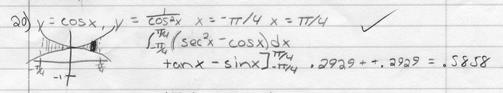 20) y = cosx, y = 1/cos²x x = -π/4 x = π/4
∫_{-π/4}^{π/4} (sec²x - cosx)dx
tanx - sinx]_{-π/4}^{π/4} .2929 + +.2929 = .5858
-π/4 π/4
-1